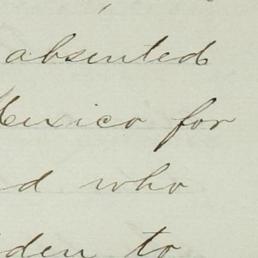 absented
Mexico for
d who
den to